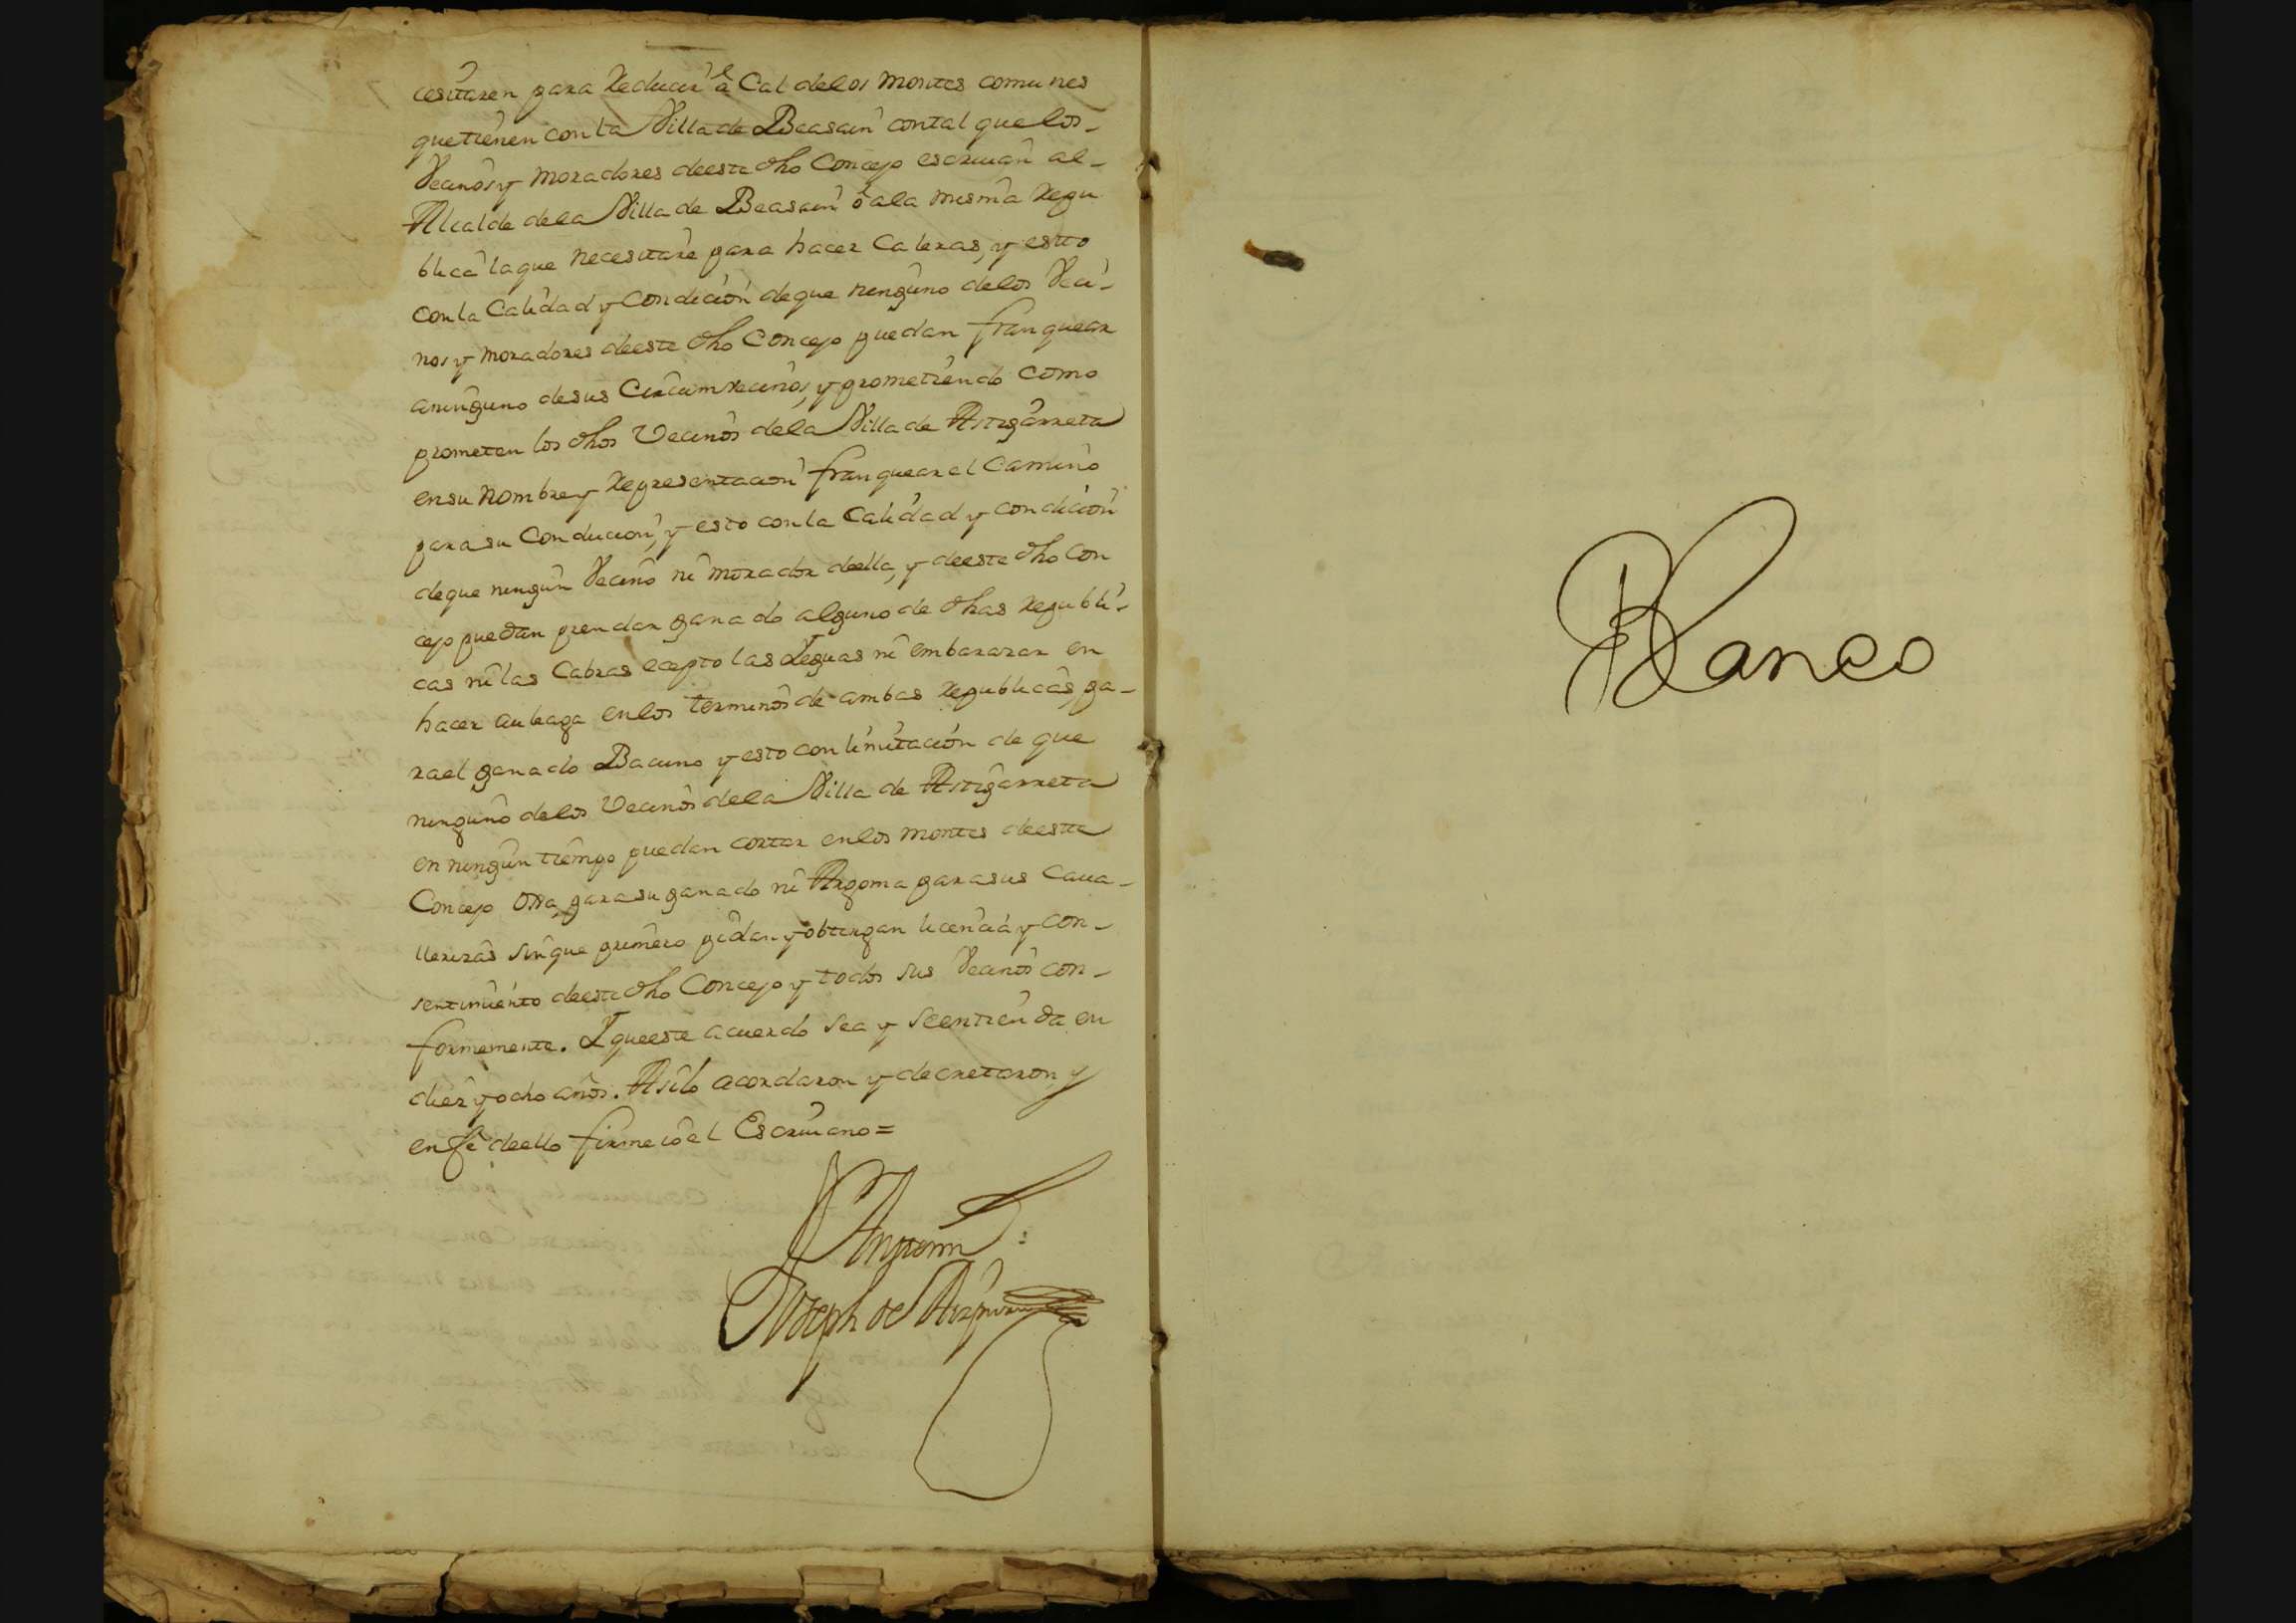 cesitaren para Reducir â Cal delos montes comunes
quetienen con la Villa de Beasain con tal que los-
Vecinos y moradores deeste dho Concejo escrivan al-
Alcalde dela Villa de Beasain ô ala misma Repu
blica la que necesitare para hacer Caleras, y estto
con la Calidad y Condicion deque ninguno delos Veci-
nos y moradores deeste dho Concejo puedan franquear
aninguno desus Circumvecinos, y prometiendo como
prometen los dhos Vecinos dela Villa de Astigarreta
ensu nombre y Representacion franquear el Camino
para su Conducion, y esto con la Calidad y condicion
deque ningun Vecino ni morador deella, y deeste dho Con
cejo puedan prendar ganado alguno de dhas Republi-
cas ni las Cabras ecepto las Yeguas ni embarazar en
hacer auleaga enlos terminos de ambas Republicas, pa-
rael ganado Bacuno y esto con limitacion de que
ninguno delos Vecinos dela Villa de Astigarreta
en ningun tiempo puedan cortar enlos montes deestte
Concejo Otta para su ganado ni Argoma para sus Cava-
llerizas sin que primero pidan y obtengan licencia y con-
sentimiento deeste dho Concejo y todos sus Vecinos con-
formemente. Y queeste acuerdo sea y seentienda en
diez y ocho años. Asilo acordaron y decretaron y
en fe deello firme io el Escrivano=
Antemi :
Joseph de
Blanco